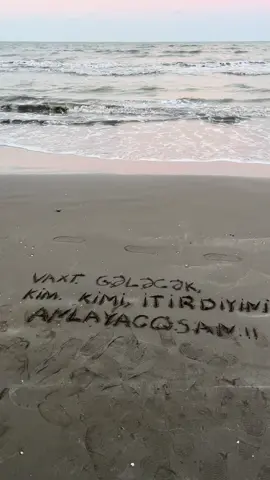 VAXT. GƏLƏCƏK,
KİM. KİMİ, İTİRDİYİNİ
ANLAYACQSAN. !!